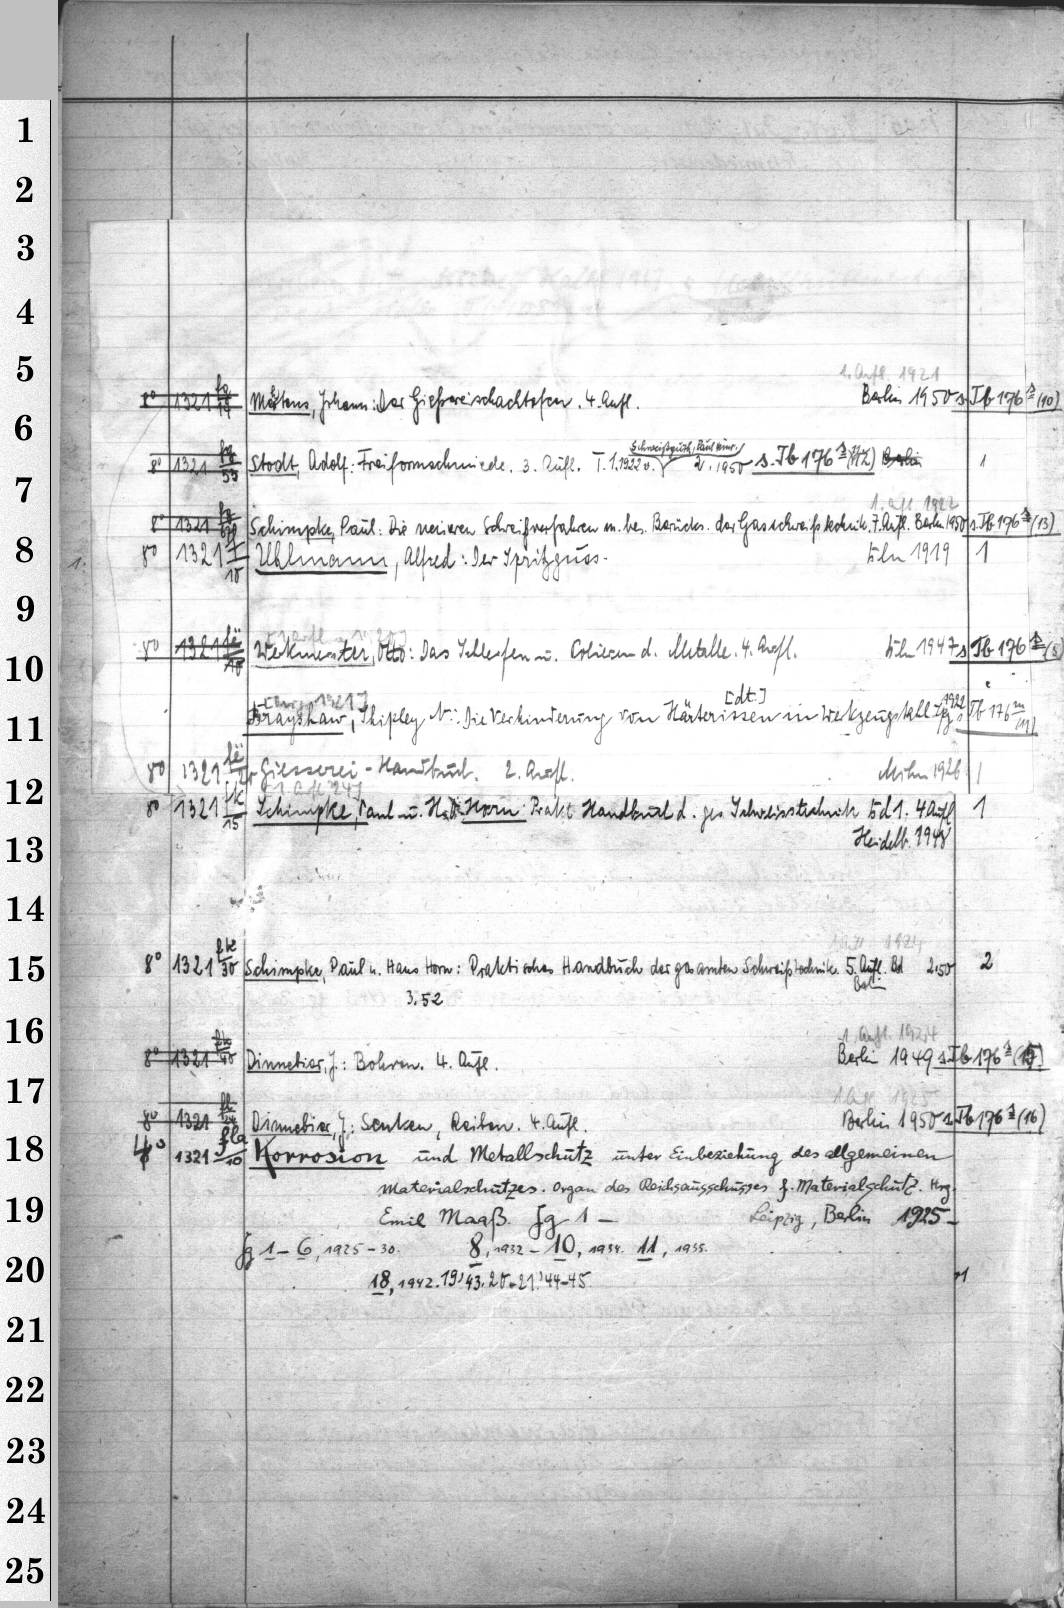 1
2
3
4
5
1. Aufl. 1921
8° 1321 Mehrtens, Johann: Der Gießereischachtofen. 4. Aufl. Berlin 1950 s. Tb 176 (10)
6
Schweißguth, Paul Heinr.
8° 1321 Stodt, Adolf: Freiformschmiede. 3. Aufl. T. 1. 1922 u. 2. 1950 s. Tb 176 Berlin 1
7
8° 1321 Schimpke, Paul: Die neueren Schweißverfahren m. bes. Berücks. der Gasschweißtechnik. 7. Aufl. Berlin 1950 s. Tb 176 (13)
8
8° 1321 f/10 Uhlmann, Alfred: Der Spritzguss. Bln 1919 1
9
10
8° 1321 Werkmeister, Otto: Das Schleifen u. Polieren d. Metalle. 4. Aufl. Bln 1947 s. Tb 176
[dt.]
11
Brayshaw, Shipley N.: Die Verhinderung von Härterissen in Werkzeugstahl Tb 176 m
8° 1321 Giesserei-Handbuch. 2. Aufl. Mchn 1926 1
12
8° 1321 fk/15 Schimpke, Paul u. Horn: Prakt Handbuch d. ges Schweisstechnik Bd 1. 4 Aufl 1
13
Heidelb. 1948
14
15
8° 1321 fk/30 Schimpke, Paul u. Hans Horn: Praktisches Handbuch der gesamten Schweißtechnik. 5. Aufl. Bd 2.50 2
3.52
16
1. Aufl. 1924
8° 1321 Dinnebier, J.: Bohren. 4. Aufl. Berlin 1949 s. Tb 176 (15)
17
8° 1321 Dinnebier, J.: Senken, Reiben. 4. Aufl. Berlin 1950 s. Tb 176 (16)
18
4° 1321 fla/10 Korrosion und Metallschutz unter Einbeziehung des allgemeinen
Materialschutzes. Organ des Reichsausschusses f. Materialschutz. Hrg.
19
Emil Maaß. Jg 1 – Leipzig, Berlin 1925–
Jg 1 – 6, 1925–30. 8, 1932 – 10, 1934. 11, 1935.
20
18, 1942. 19, '43. 20–21, '44–45. 1
21
22
23
24
25